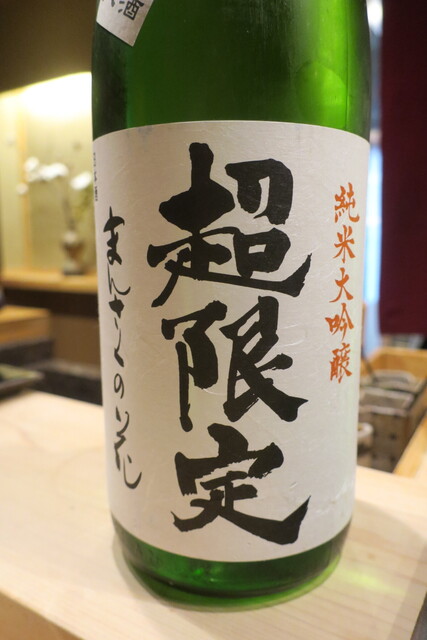 純米大吟醸
超限定
まんさくの花
酒